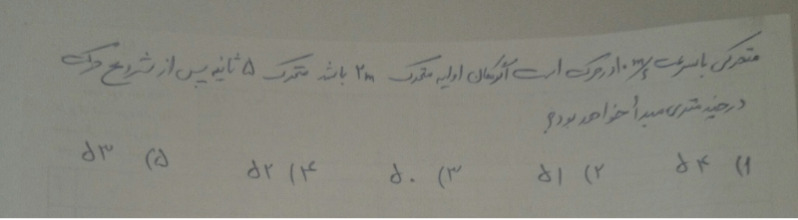 متحرکی با سرعت ۱۰ m/s در حرکت است اگر مکان اولیه متحرک ۲m باشد متحرک ۵ ثانیه پس از شروع حرکت
در چند متری مبدأ خواهد بود؟
۱) ۵۴ ۲) ۵۱ ۳) ۵۰ ۴) ۵۲ ۵) ۵۳